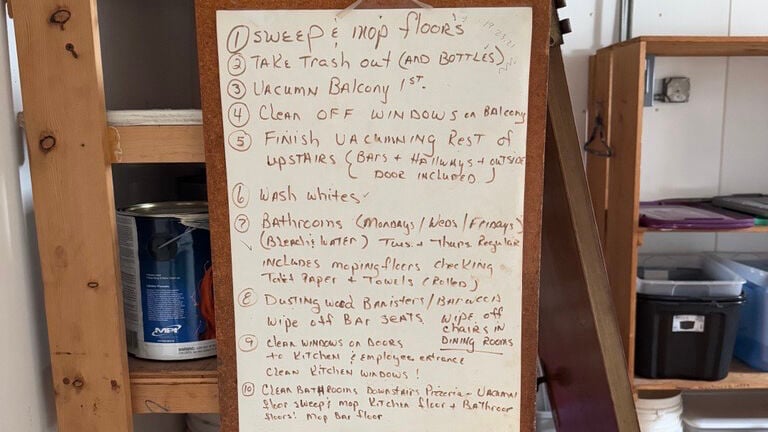 ① SWEEP & MOP FLOOR'S
② TAKE TRASH OUT (AND BOTTLE'S)
③ VACUMN BALCONY 1ST.
④ CLEAN OFF WINDOWS on BALCONY
⑤ FINISH VACUMNING REST OF
UPSTAIRS (BARS + HALLWAYS + OUTSIDE
DOOR INCLUDED)
⑥ WASH WHITES
⑦ BATHROOMS (MONDAYS/WEDS/FRIDAYS)
(BLEACH & WATER) TUES + THURS REGULAR
INCLUDES MOPING FLOORS CHECKING
PAPER + TOWELS (ROLLED)
⑧ DUSTING WOOD BANISTERS/BAR WOOD
WIPE OFF BAR SEATS WIPE OFF
CHAIRS IN
DINING ROOMS
⑨ CLEAN WINDOWS ON DOORS
TO KITCHEN & EMPLOYEE ENTRANCE
CLEAN KITCHEN WINDOWS!
⑩ CLEAN BATHROOMS DOWNSTAIRS PIZZERIA - VACUMN
FLOOR SWEEP & MOP KITCHEN FLOOR + BATHROOM
FLOORS! MOP BAR FLOOR
MPI